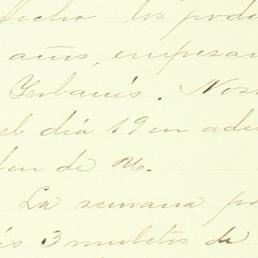 fecho los pod
años, empezan
Yerbanis. Nos
el día 19 en ade
fin de M.
La semana pa
is 3 muletos de